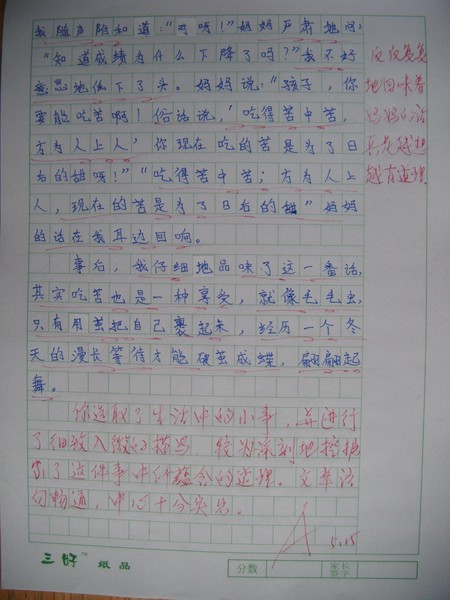 我随声应和道：“可呀！”妈妈严肃地问：
“知道成绩为什么下降了吗？”我不好
意思地低下了头。妈妈说：“孩子，你
要能吃苦啊！俗话说，‘吃得苦中苦，
方为人上人’你现在吃的苦是为了日
后的甜呀！”“吃得苦中苦；方为人上
人，现在的苦是为了日后的甜”妈妈
的话在我耳边回响。
事后，我仔细地品味了这一番话，
其实吃苦也是一种享受，就像毛毛虫，
只有用茧把自己裹起来，经历一个冬
天的漫长等待才能破茧成蝶，翩翩起
舞。
反反复复
地回味着
妈妈的话
真是越想
越有道理
你选取了生活中的小事，并进行
了细致入微的描写，较为深刻地挖掘
出了这件事中所蕴含的道理。文章语
句畅通，中心十分突出。
A 5.15
三好 TM 纸品
分数
家长
签字